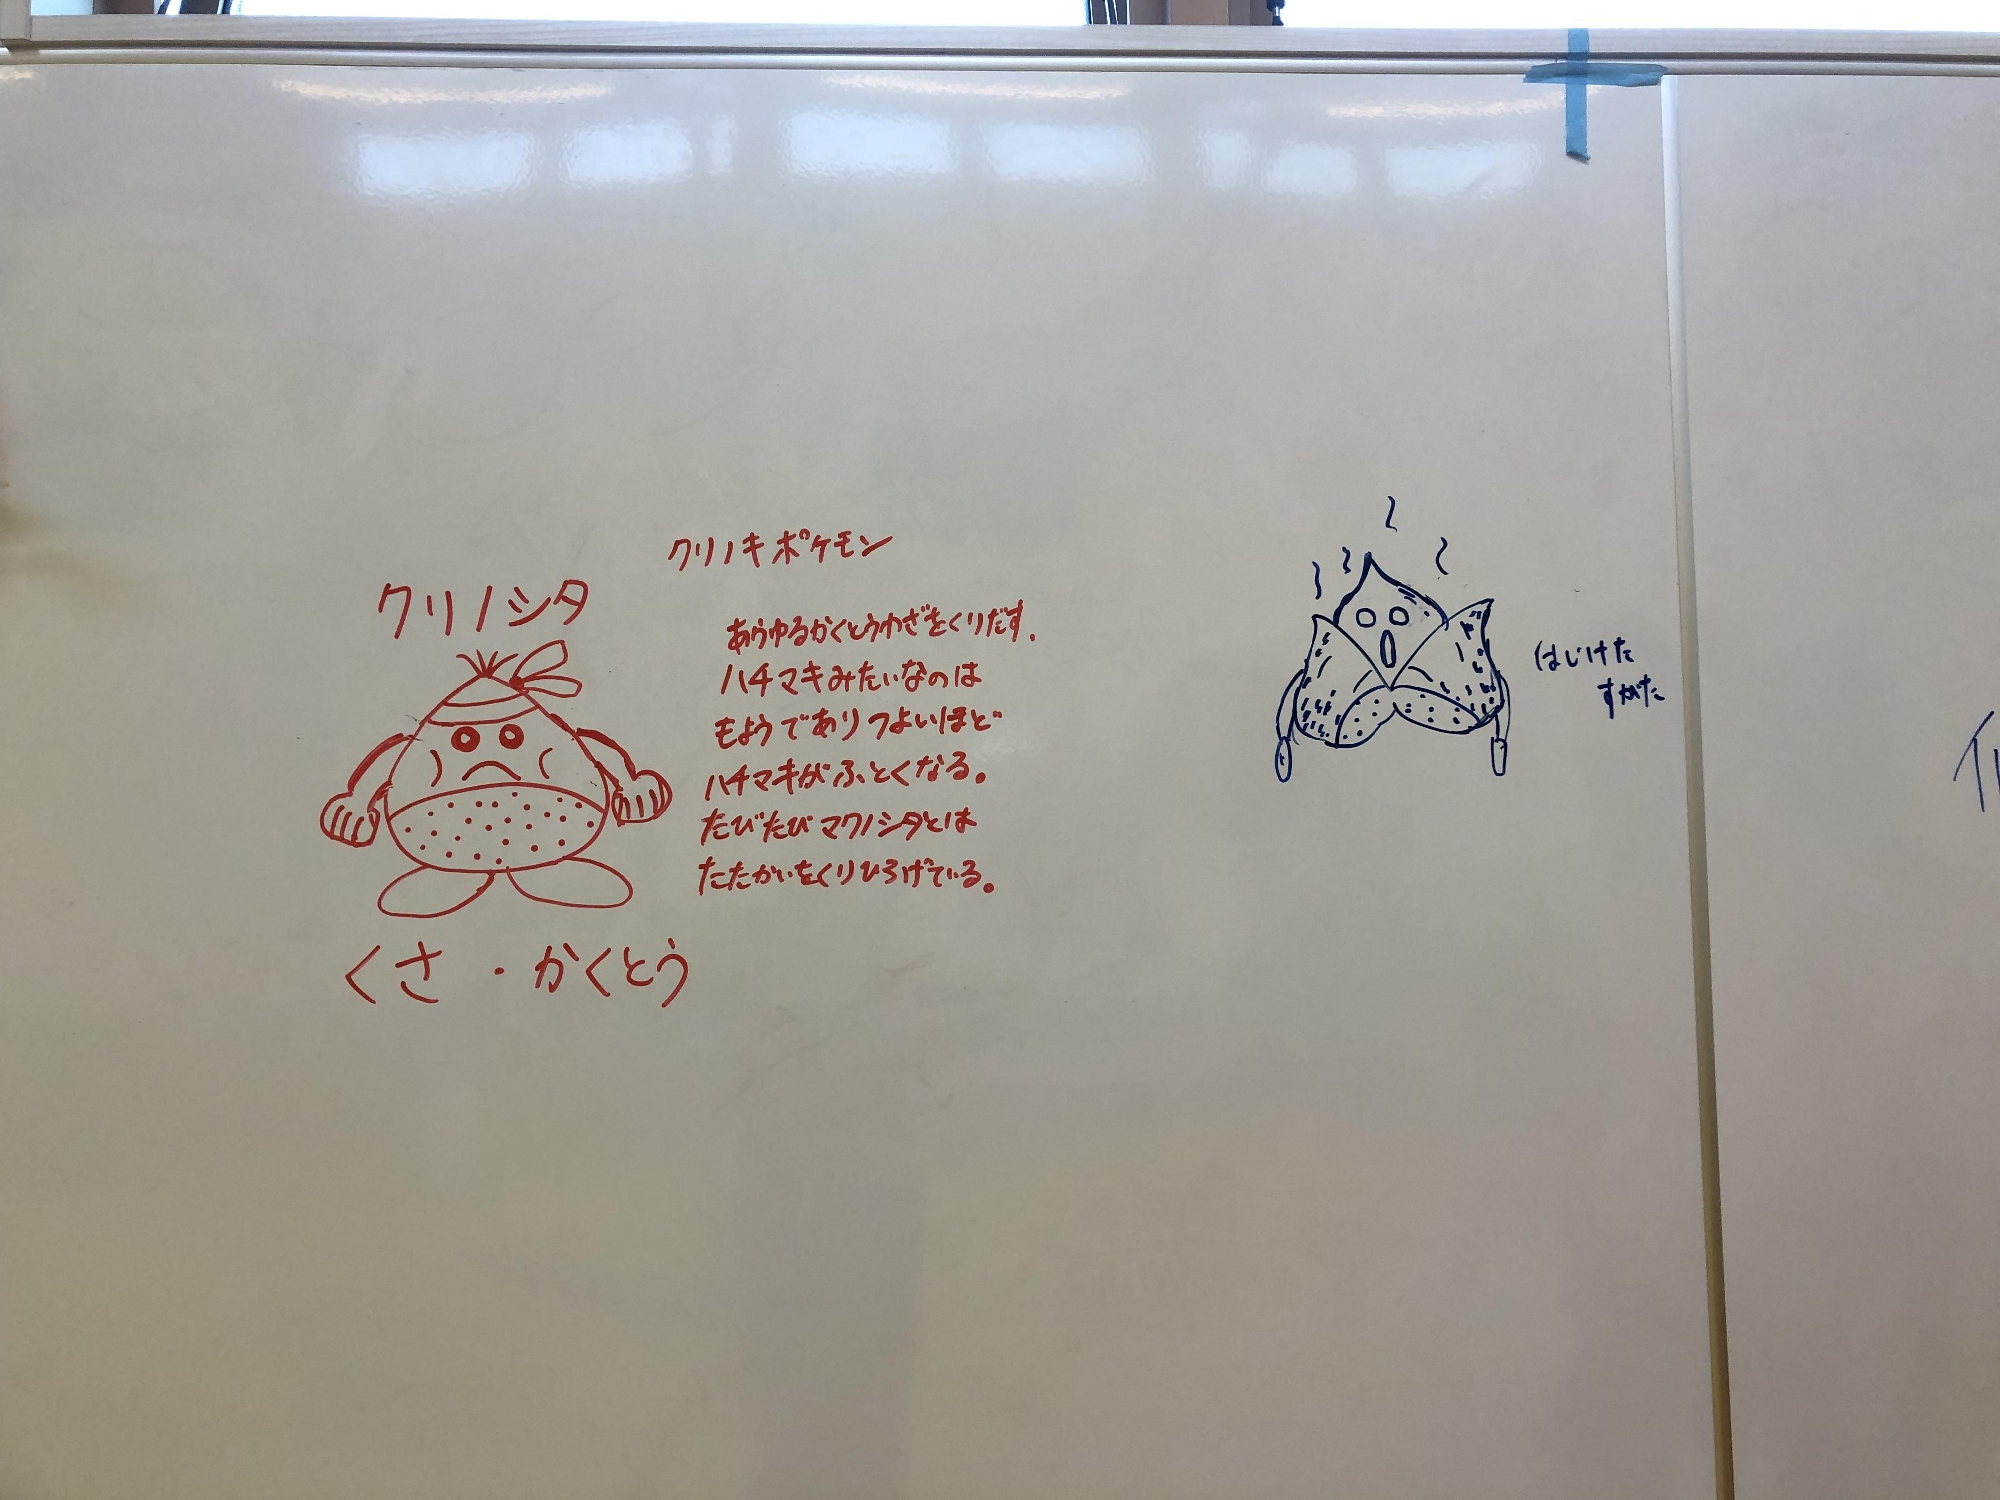 クリノキポケモン
クリノシタ
あらゆるかくとうわざをくりだす.
ハチマキみたいなのは
もようでありつよいほど
ハチマキがふとくなる。
たびたびマクノシタとは
たたかいをくりひろげている。
くさ・かくとう
はじけた
すがた